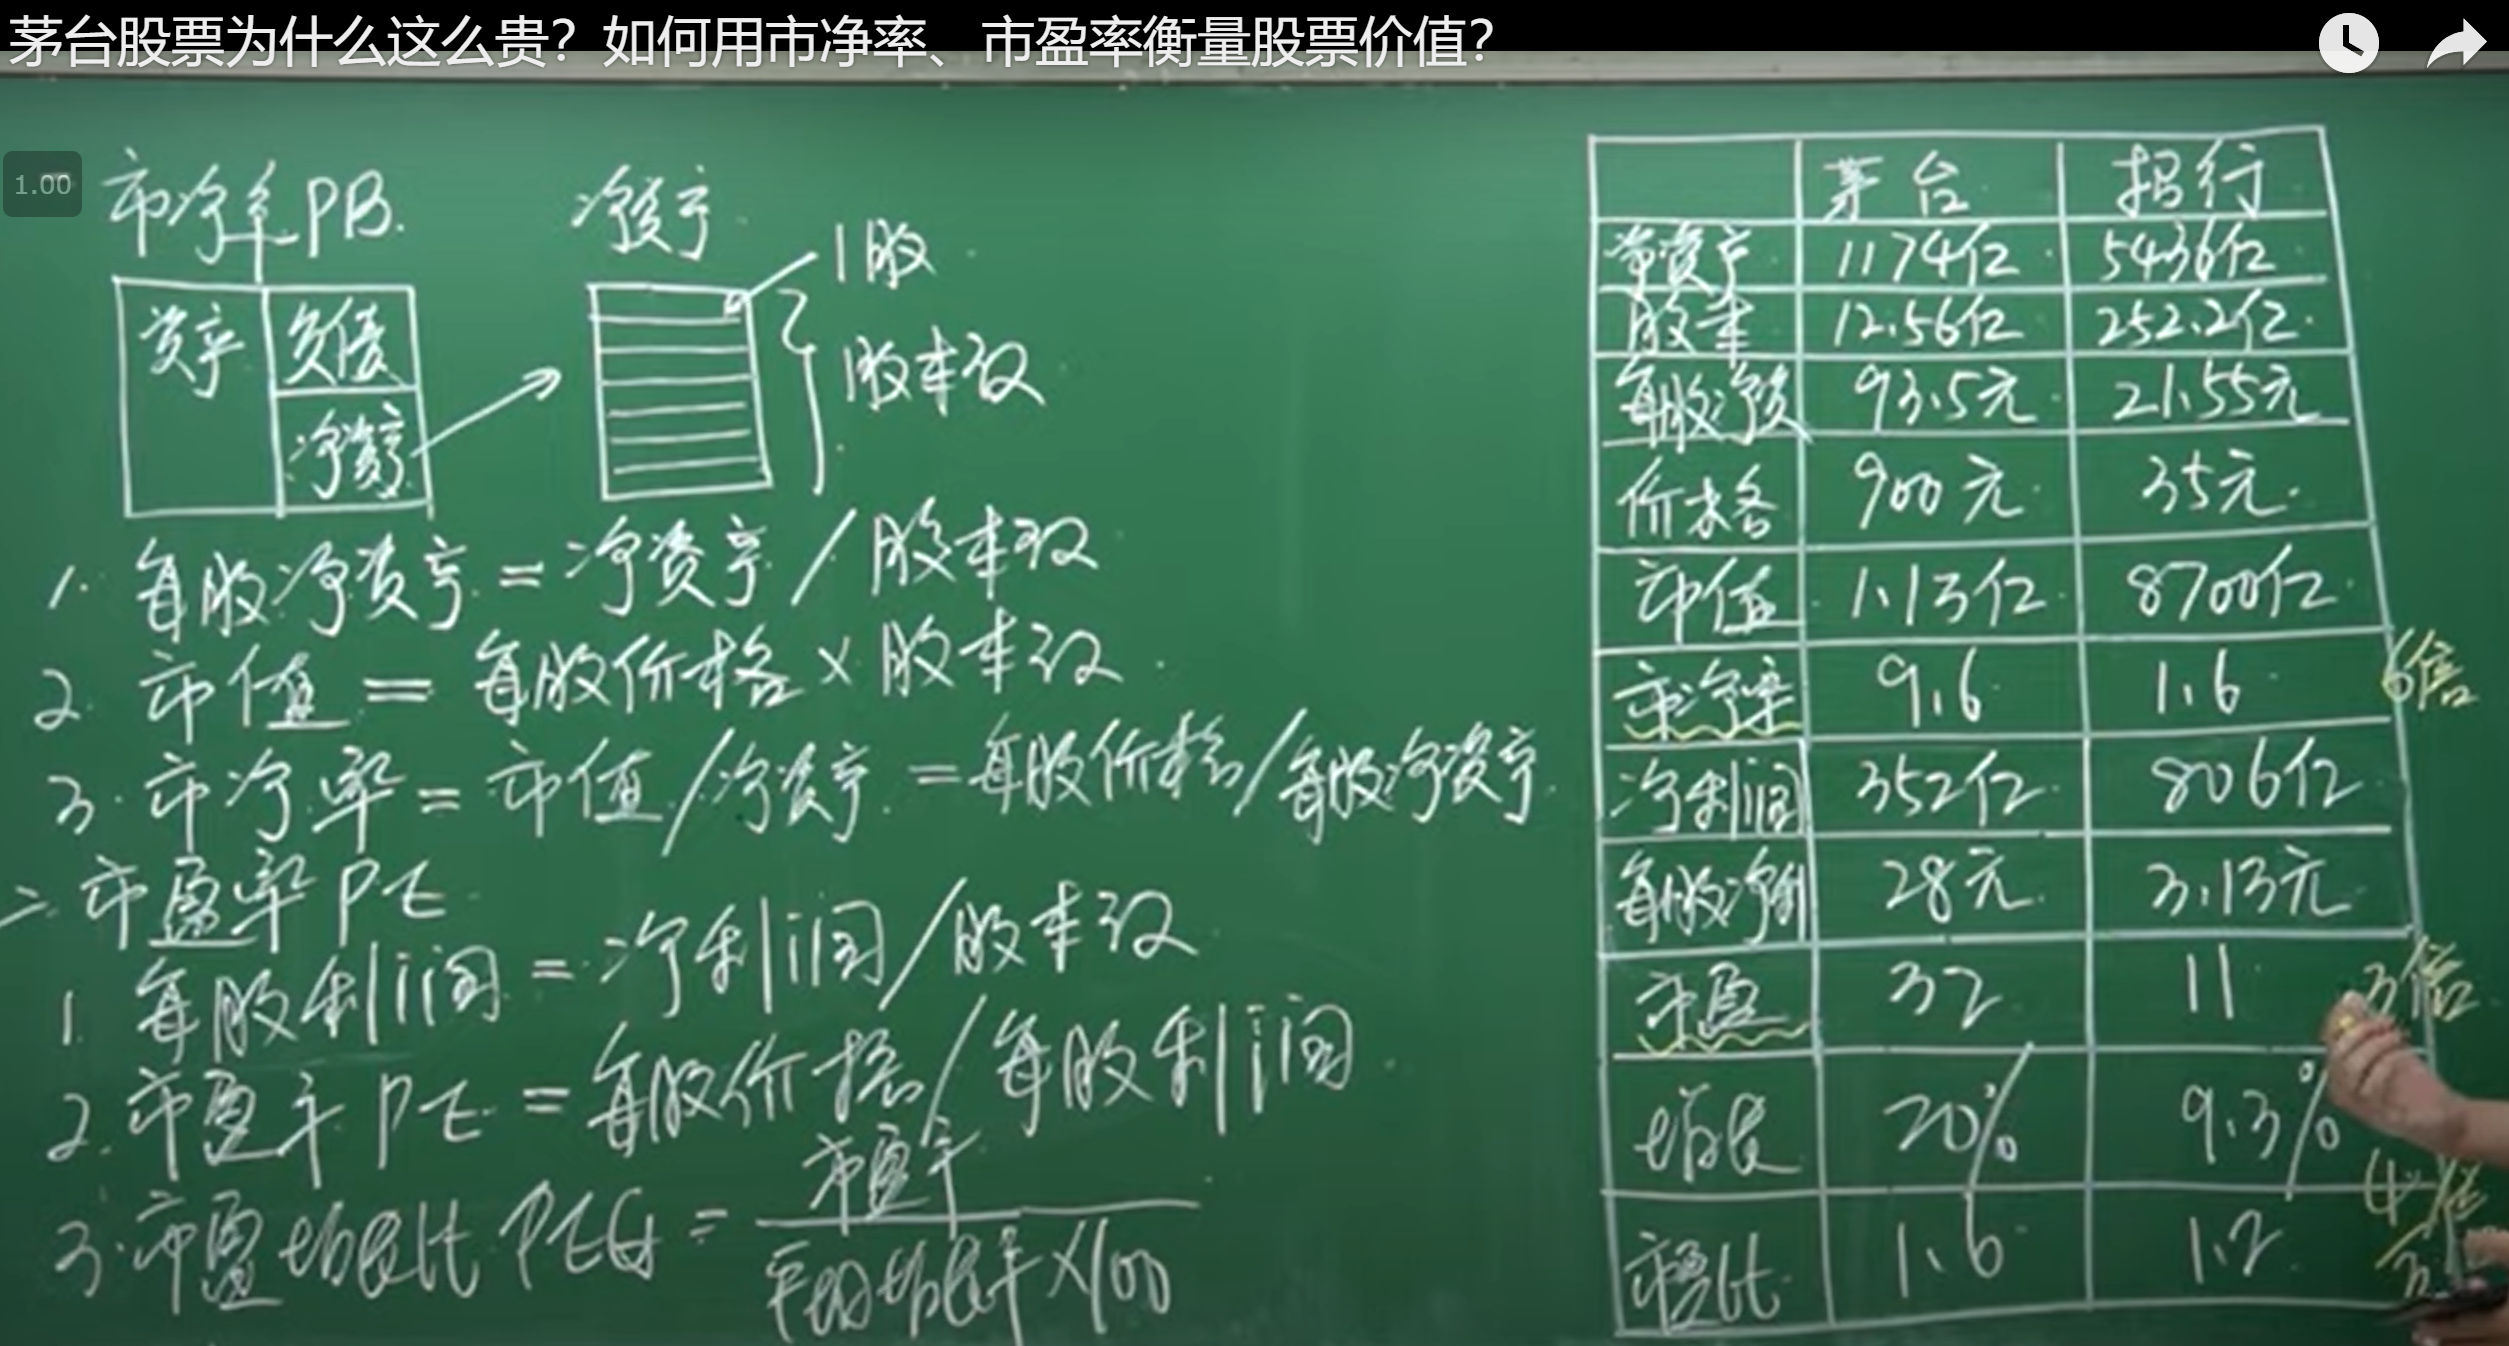 茅台股票为什么这么贵？如何用市净率、市盈率衡量股票价值？
1.00
市净率PB.
净资产
1股
股本数
资产
负债
净资产
1. 每股净资产=净资产/股本数
2. 市值=每股价格×股本数
3. 市净率=市值/净资产=每股价格/每股净资产
二. 市盈率PE
1. 每股利润=净利润/股本数
2. 市盈率PE=每股价格/每股利润
3. 市盈增长比PEG=市盈率
平均增长率×100
茅台 招行
净资产 1174亿 5436亿
股本 12.56亿 252.2亿
每股净资 93.5元 21.55元
价格 900元 35元
市值 1.13亿 8700亿
市净率 9.6 1.6 6倍
净利润 352亿 806亿
每股净利 28元 3.13元
市盈 32 11 3倍
增长 20% 9.3%
市盈比 1.6 1.2